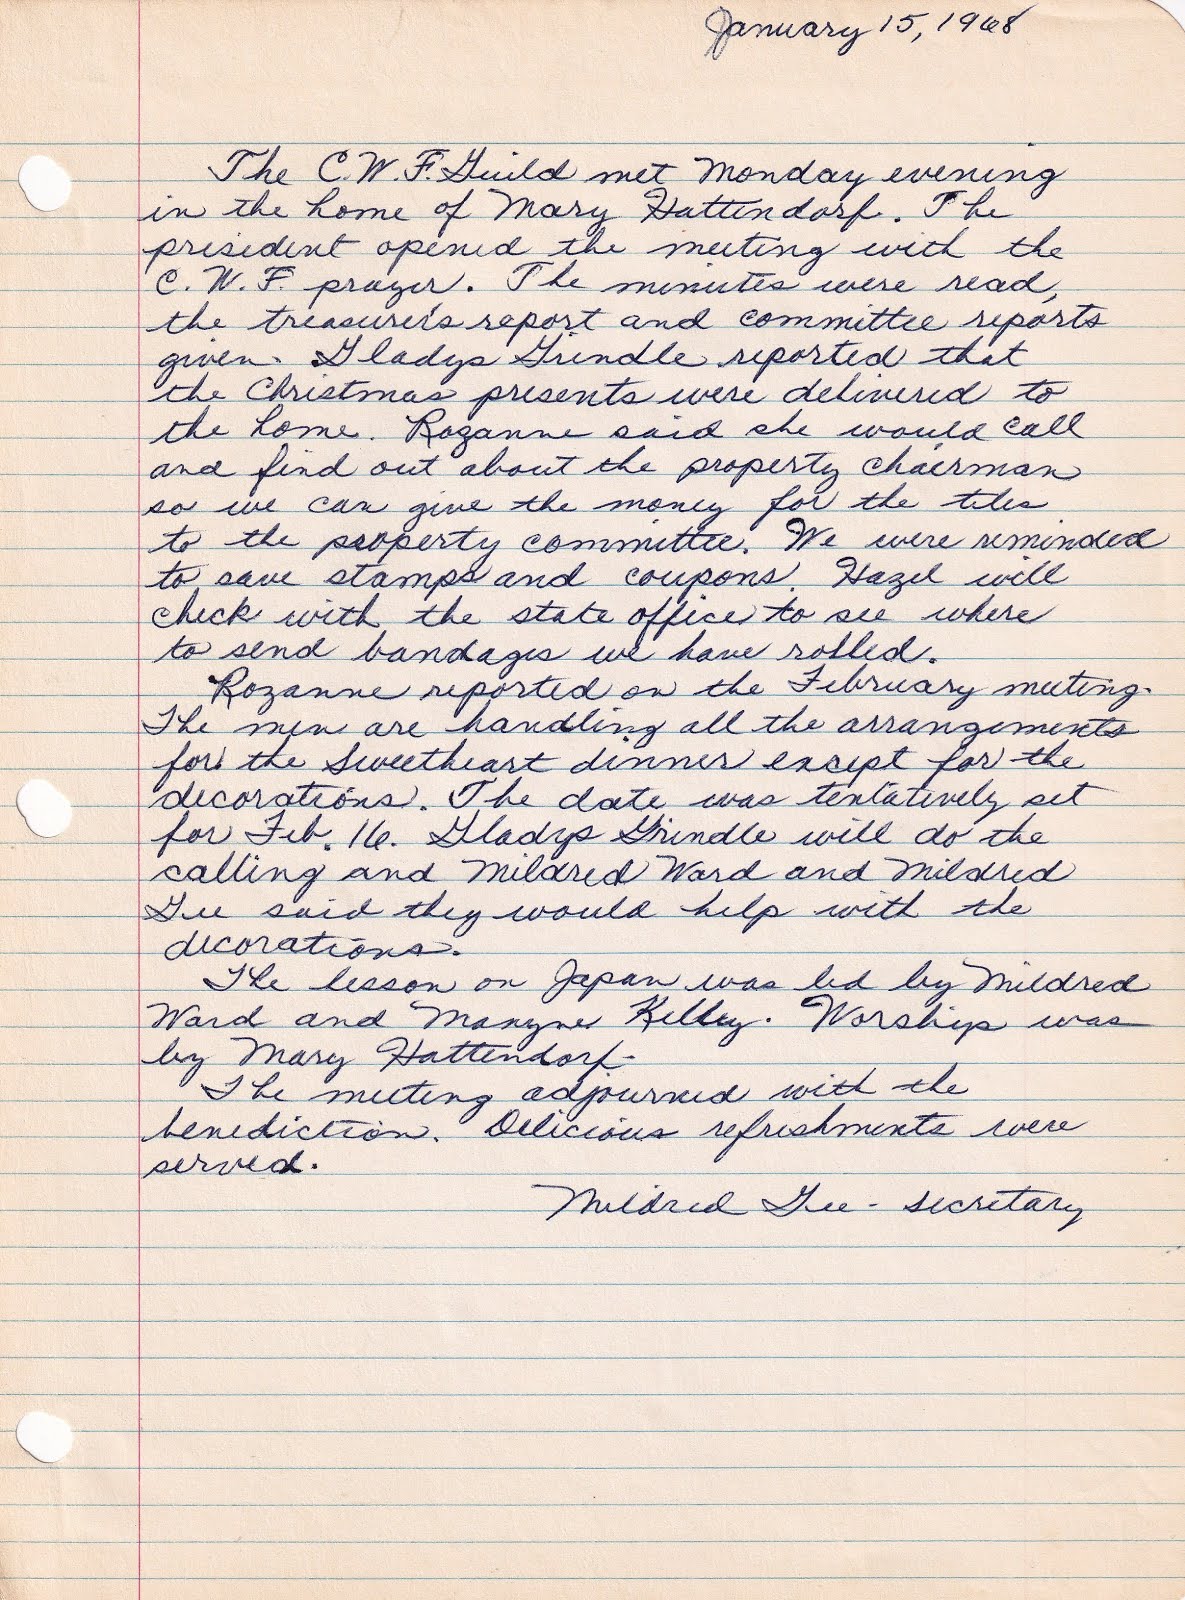 January 15, 1968
The C.W.F. Guild met Monday evening
in the home of Mary Hattendorf. The
president opened the meeting with the
C.W.F. prayer. The minutes were read,
the treasurer's report and committee reports
given. Gladys Grindle reported that
the Christmas presents were delivered to
the home. Rozanne said she would call
and find out about the property chairman
so we can give the money for the tiles
to the property committee. We were reminded
to save stamps and coupons. Hazel will
check with the state office to see where
to send bandages we have rolled.
Rozanne reported on the February meeting.
The men are handling all the arrangements
for the Sweetheart dinner except for the
decorations. The date was tentatively set
for Feb. 16. Gladys Grindle will do the
calling and Mildred Ward and Mildred
Gee said they would help with the
decorations.
The lesson on Japan was led by Mildred
Ward and Kelley. Worship was
by Mary Hattendorf.
The meeting adjourned with the
benediction. Delicious refreshments were
served.
Mildred Gee - secretary